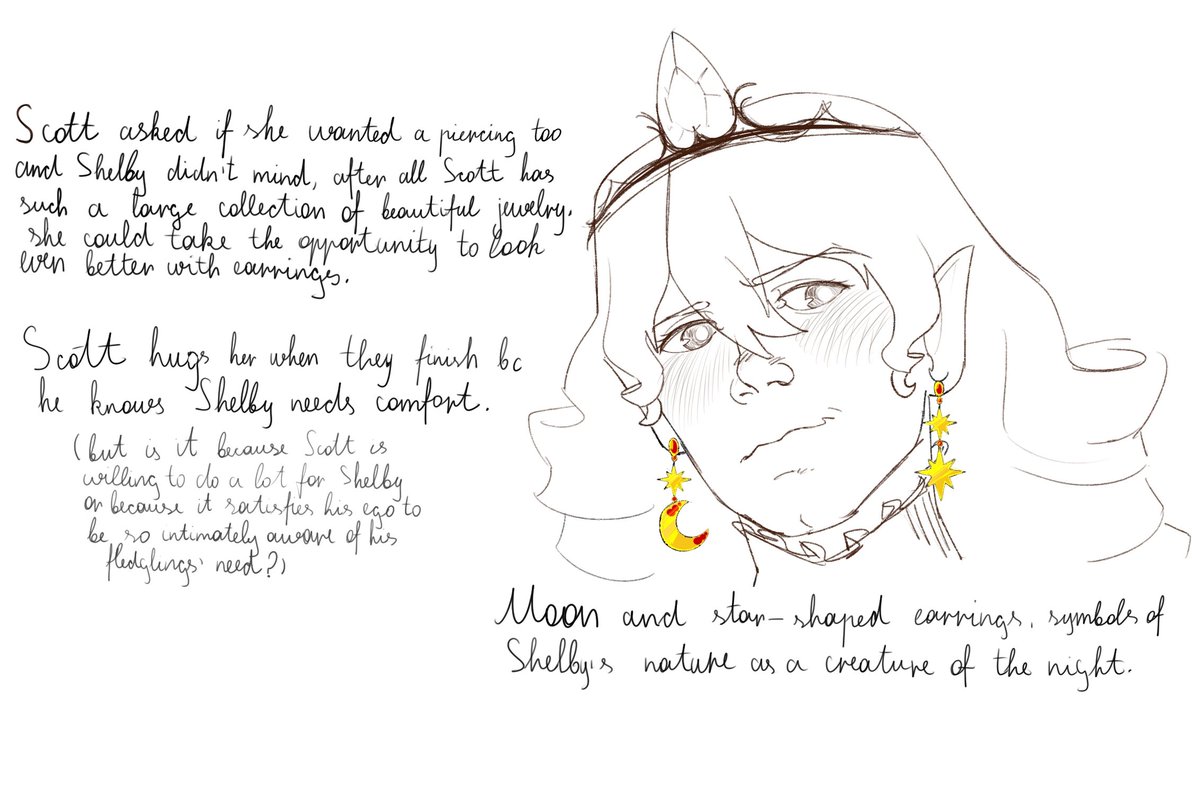 Scott asked if she wanted a piercing too
and Shelby didn't mind, after all Scott has
such a large collection of beautiful jewelry.
she could take the opportunity to look
even better with earrings.
Scott hugs her when they finish bc
he knows Shelby needs comfort.
(but is it because Scott is
willing to do a lot for Shelby
or because it satisfies his ego to
be so intimately aware of his
fledglings' need?)
Moon and star-shaped earrings, symbols of
Shelby's nature as a creature of the night.